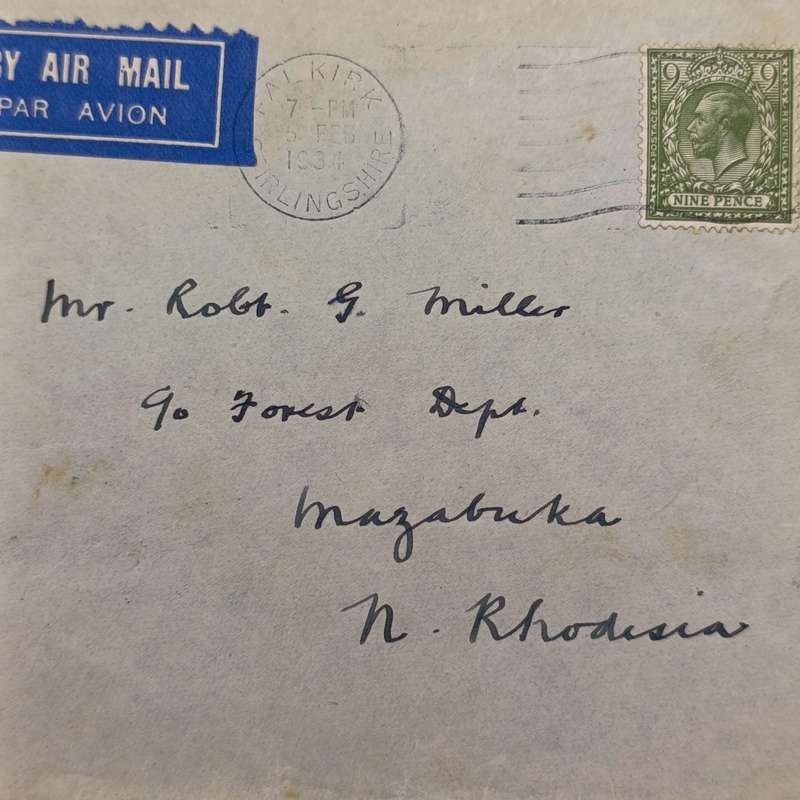 BY AIR MAIL
PAR AVION
FALKIRK
7 - PM
5 FEB
1934
STIRLINGSHIRE
9 9
POSTAGE REVENUE
NINE PENCE
Mr. Robt. G. Miller
c/o Forest Dept.
Mazabuka
N. Rhodesia